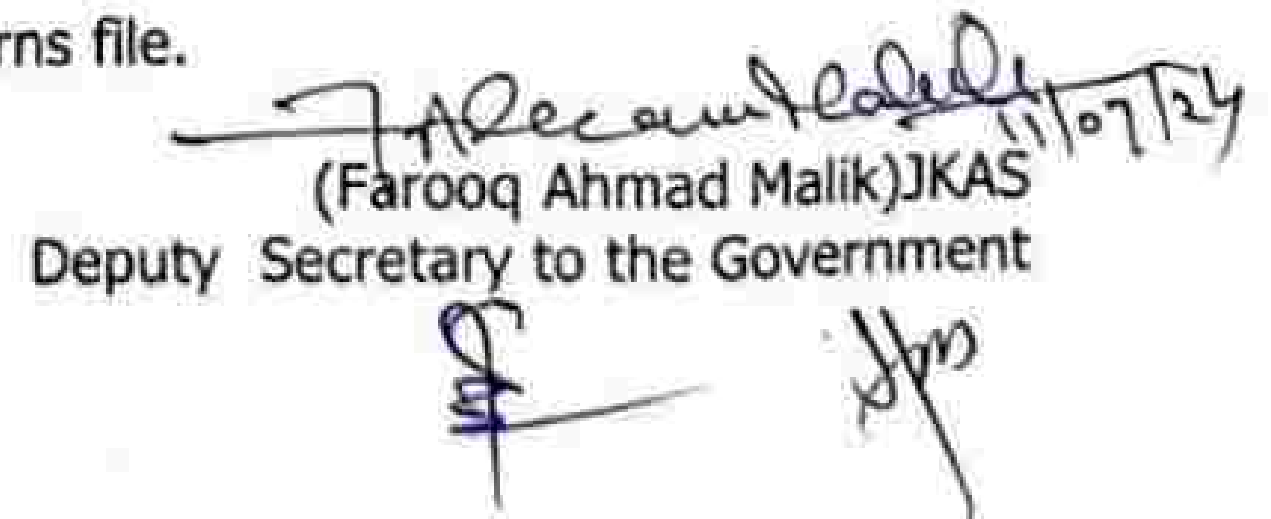 rns file.
11/07/24
(Farooq Ahmad Malik)JKAS
Deputy Secretary to the Government